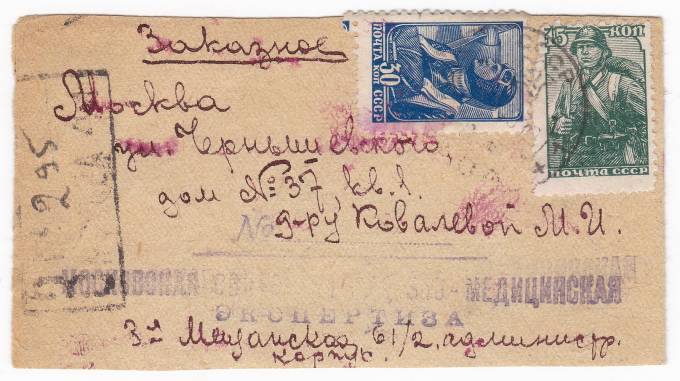 Заказное
30
ПОЧТА
КОП
СССР
15 КОП
ПОЧТА СССР
Москва
ул. Чернышевского,
дом № 37, кв. 1.
д-ру Ковалевой М. И.
№
295
МОСКОВСКАЯ
- МЕДИЦИНСКАЯ
ЭКСПЕРТИЗА
3-я Мещанская 61/2, администр.
корпус.